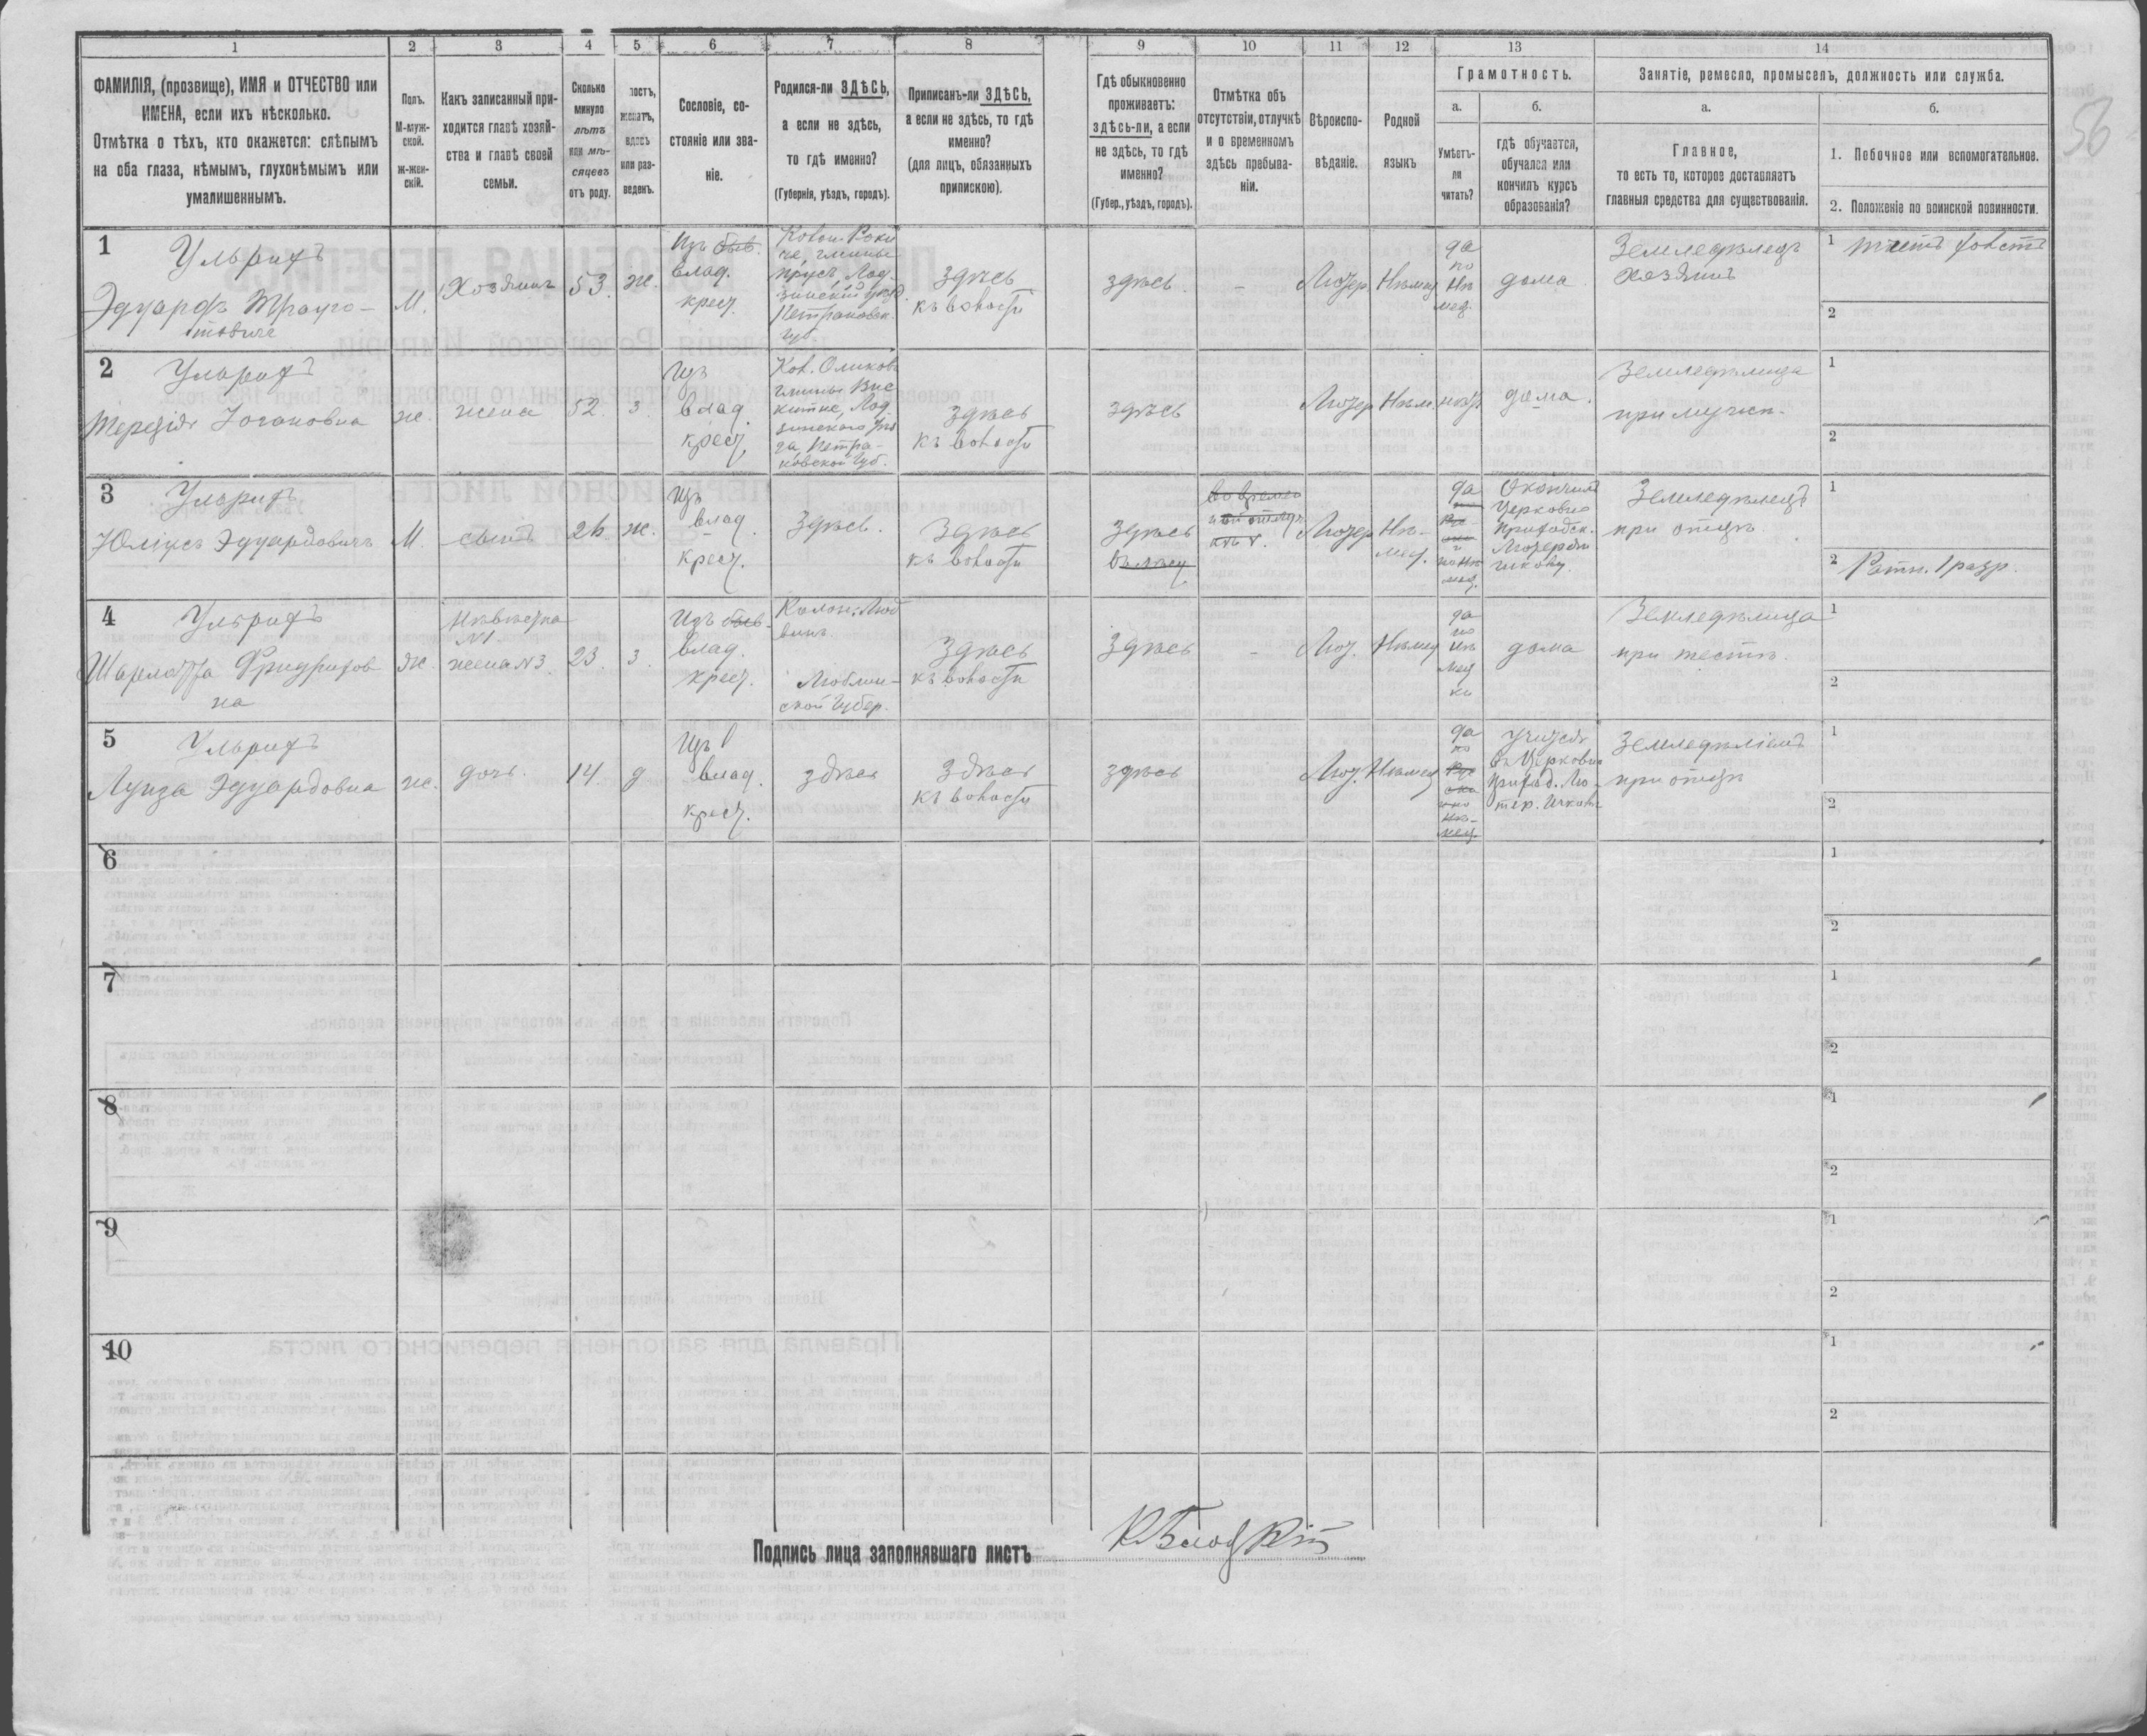 1 2 3 4 5 6 7 8 9 10 11 12 13 14
ФАМИЛІЯ, (прозвище), ИМЯ и ОТЧЕСТВО или
ИМЕНА, если ихъ нѣсколько.
Отмѣтка о тѣхъ, кто окажется: слѣпымъ
на оба глаза, нѣмымъ, глухонѣмымъ или
умалишеннымъ.
Полъ.
М-муж-
ской.
ж-жен-
скій.
Какъ записанный при-
ходится главѣ хозяй-
ства и главѣ своей
семьи.
Сколько
минуло
лѣтъ
или мѣ-
сяцевъ
отъ роду.
лостъ,
женатъ,
вдовъ
или раз-
веденъ.
Сословіе, со-
стояніе или зва-
ніе.
Родился-ли ЗДѢСЬ,
а если не здѣсь,
то гдѣ именно?
(Губернія, уѣздъ, городъ).
Приписанъ-ли ЗДѢСЬ,
а если не здѣсь, то гдѣ
именно?
(для лицъ, обязанныхъ
припискою).
Гдѣ обыкновенно
проживаетъ:
здѣсь-ли, а если
не здѣсь, то гдѣ
именно?
(Губер., уѣздъ, городъ).
Отмѣтка объ
отсутствіи, отлучкѣ
и о временномъ
здѣсь пребыва-
ніи.
Вѣроиспо-
вѣданіе.
Родной
языкъ
Грамотность.
а.
Умѣетъ-
ли
читать?
б.
гдѣ обучается,
обучался или
кончилъ курсъ
образованія?
Занятіе, ремесло, промыселъ, должность или служба.
а.
Главное,
то есть то, которое доставляетъ
главныя средства для существованія.
б.
1. Побочное или вспомогательное.
2. Положеніе по воинской повинности.
56
1
Ульрихъ
Эдуардъ Трауго-
товичъ
М.
Хозяинъ
53.
ж.
Изъ быв.
влад.
крест.
Лод-
зинскій уѣзд.
Петраковск.
губ.
Здѣсь
къ волости
здѣсь.
-
Лютер.
Нѣмец
да
по
Нѣ
мец.
дома.
Земледѣлецъ
хозяинъ
1
2
2
Ульрихъ
Терезія Іогановна
ж.
жена
52.
з.
Изъ
влад.
крест.
гмины
Лод-
зинскаго уѣз
да, Петра-
ковской Губ.
Здѣсь
къ волости
здѣсь
Лютер
Нѣм.
нѣт
дома.
Земледѣлица
при мужѣ.
1
2
3
Ульрихъ
Юліусъ Эдуардовичъ
М.
сынъ
26.
ж.
Изъ
влад.
крест.
Здѣсь.
Здѣсь
къ волости
Здѣсь
Лютер
Нѣ-
мец.
да
по Нѣ
мец.
Окончилъ
Церковно
Приходск.
Лютеран
школу.
Земледѣлецъ
при отцѣ
1
2 Ратн. 1 разр.
4
Ульрихъ
Шарлотта Фридрихов
на
ж.
Невѣстка
№1
жена №3
23.
з.
Изъ быв.
влад.
крест.
Колон. Люд
винъ
Люблин-
ской Губер.
Здѣсь
къ волости
Здѣсь
-
Лют.
Нѣмец
да
по
нѣ
мец
ки
дома
Земледѣлица
при тестѣ.
1
2
5
Ульрихъ
Луиза Эдуардовна
ж.
дочь.
14.
д
Изъ
влад.
крест.
здѣсь
Здѣсь
къ волости
здѣсь
Лют.
Нѣмец
да
по
Рус
ски
и по
Нѣ-
мец.
учится
въ Церковно
Приход. Лю-
тер. Школѣ
Земледѣліемъ
при отцѣ
1
2
6
1
2
7
1
2
8
1
2
9
1
2
10
1
2
Подпись лица заполнявшаго листъ